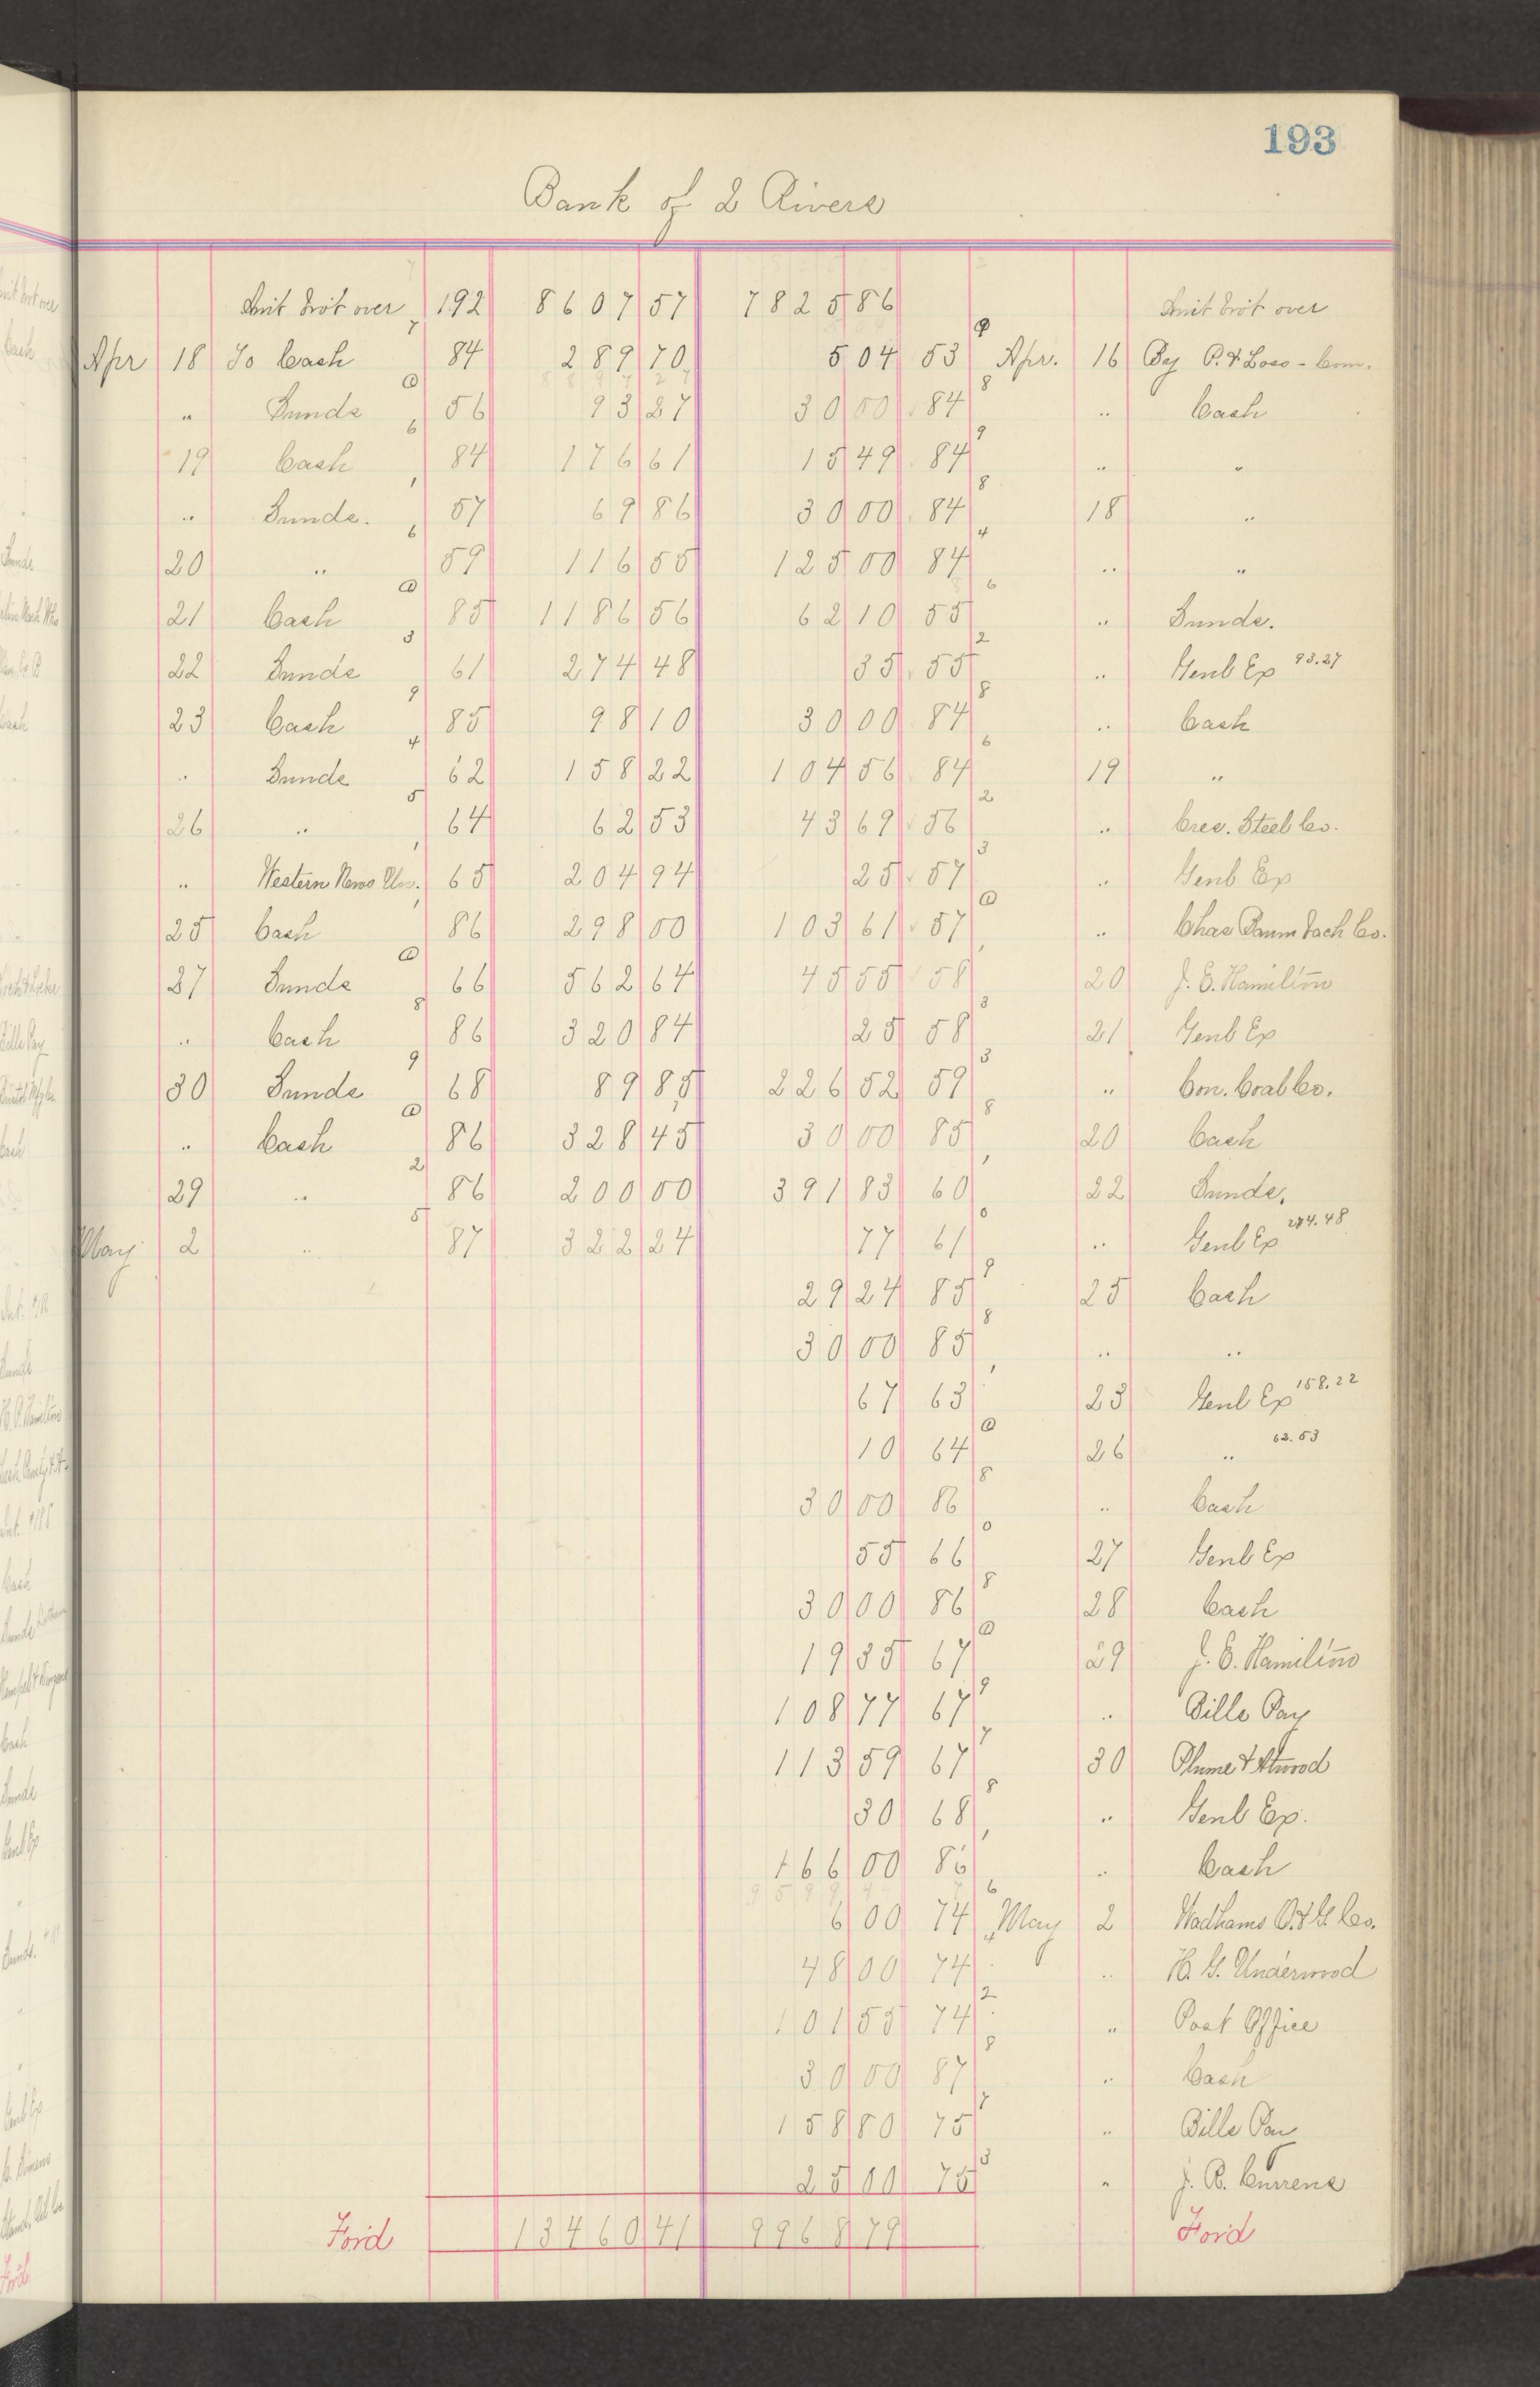 193
Bank of 2 Rivers
Amt brôt over 192 8607 57 7825 86 Amt brôt over
Apr 18 To Cash 84 289 70 5 04 53 Apr. 16 By P. & Loss - Com.
" Sunds 56 93 27 30 00 84 " Cash
19 Cash 84 176 61 15 49 84 " "
" Sunds. 57 69 86 30 00 84 18 "
20 " 59 116 55 125 00 84 " "
21 Cash 85 1186 56 62 10 55 " Sunds.
22 Sunds 61 274 48 35 55 " Genl Ex 93.27
23 Cash 85 98 10 30 00 84 " Cash
" Sunds 62 158 22 104 56 84 19 "
26 " 64 62 53 43 69 56 " Cres. Steel Co.
" Western News Un. 65 204 94 25 57 " Genl Ex
25 Cash 86 298 00 103 61 57 " Chas Baumbach Co.
27 Sunds 66 562 64 45 55 58 20 J. E. Hamilton
" Cash 86 320 84 25 58 21 Genl Ex
30 Sunds 68 89 85 226 52 59 " Con. Coal Co.
" Cash 86 328 45 30 00 85 20 Cash
29 " 86 200 00 391 83 60 22 Sunds.
May 2 " 87 322 24 77 61 " Genl Ex 274.48
29 24 85 25 Cash
30 00 85 " "
67 63 23 Genl Ex 158.22
10 64 26 " 62.53
30 00 86 " Cash
55 66 27 Genl Ex
30 00 86 28 Cash
19 35 67 29 J. E. Hamilton
108 77 67 " Bills Pay
113 59 67 30 Plume & Atwood
30 68 " Genl Ex.
166 00 86 " Cash
6 00 74 May 2 Wadhams O. & G. Co.
48 00 74 " H. G. Underwood
101 55 74 " Post Office
30 00 87 " Cash
158 80 75 " Bills Pay
25 00 75 " J. R. Currens
Ford 13460 41 9968 79 Ford